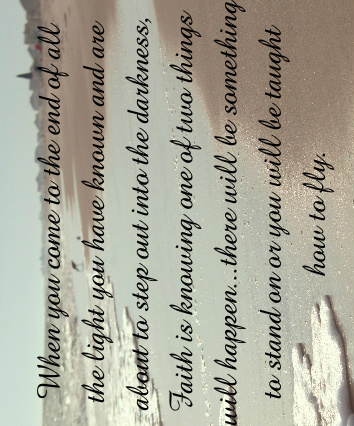 When you come to the end of all
the light you have known and are
about to step out into the darkness,
Faith is knowing one of two things
will happen...there will be something
to stand on or you will be taught
how to fly.